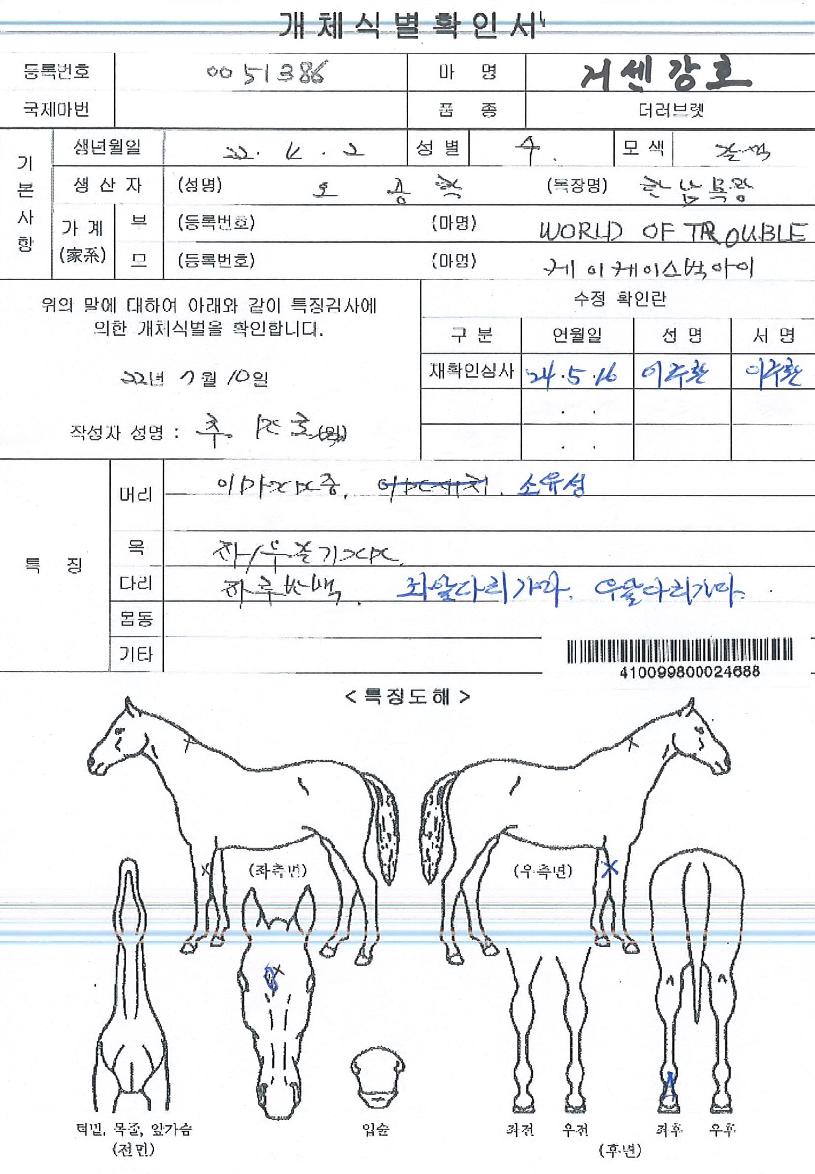 개체식별확인서
등록번호 0051386 마 명 거센강호
국제마번 품 종 더러브렛
기본사항
생년월일 22. 4. 2 성별 수. 모색 갈색
생산자 (성명) 오 (목장명)
가계(家系) 부 (등록번호) (마명) WORLD OF TROUBLE
모 (등록번호) (마명) 케이케이스빅아이
위의 말에 대하여 아래와 같이 특징검사에
의한 개체식별을 확인합니다.
22년 7월 10일
작성자 성명 :
수정 확인란
구 분 연월일 성 명 서 명
재확인심사 24.5.16 이주환 이주환
. .
. .
특 징
머리 소유성
목
다리 좌후반백. 좌앞다리가마. 우앞다리가마.
몸통
기타
410099800024688
< 특징도해 >
(좌측면) (우측면)
턱밑, 목줄, 앞가슴
(전면)
입술
좌전 우전 좌후 우후
(후면)